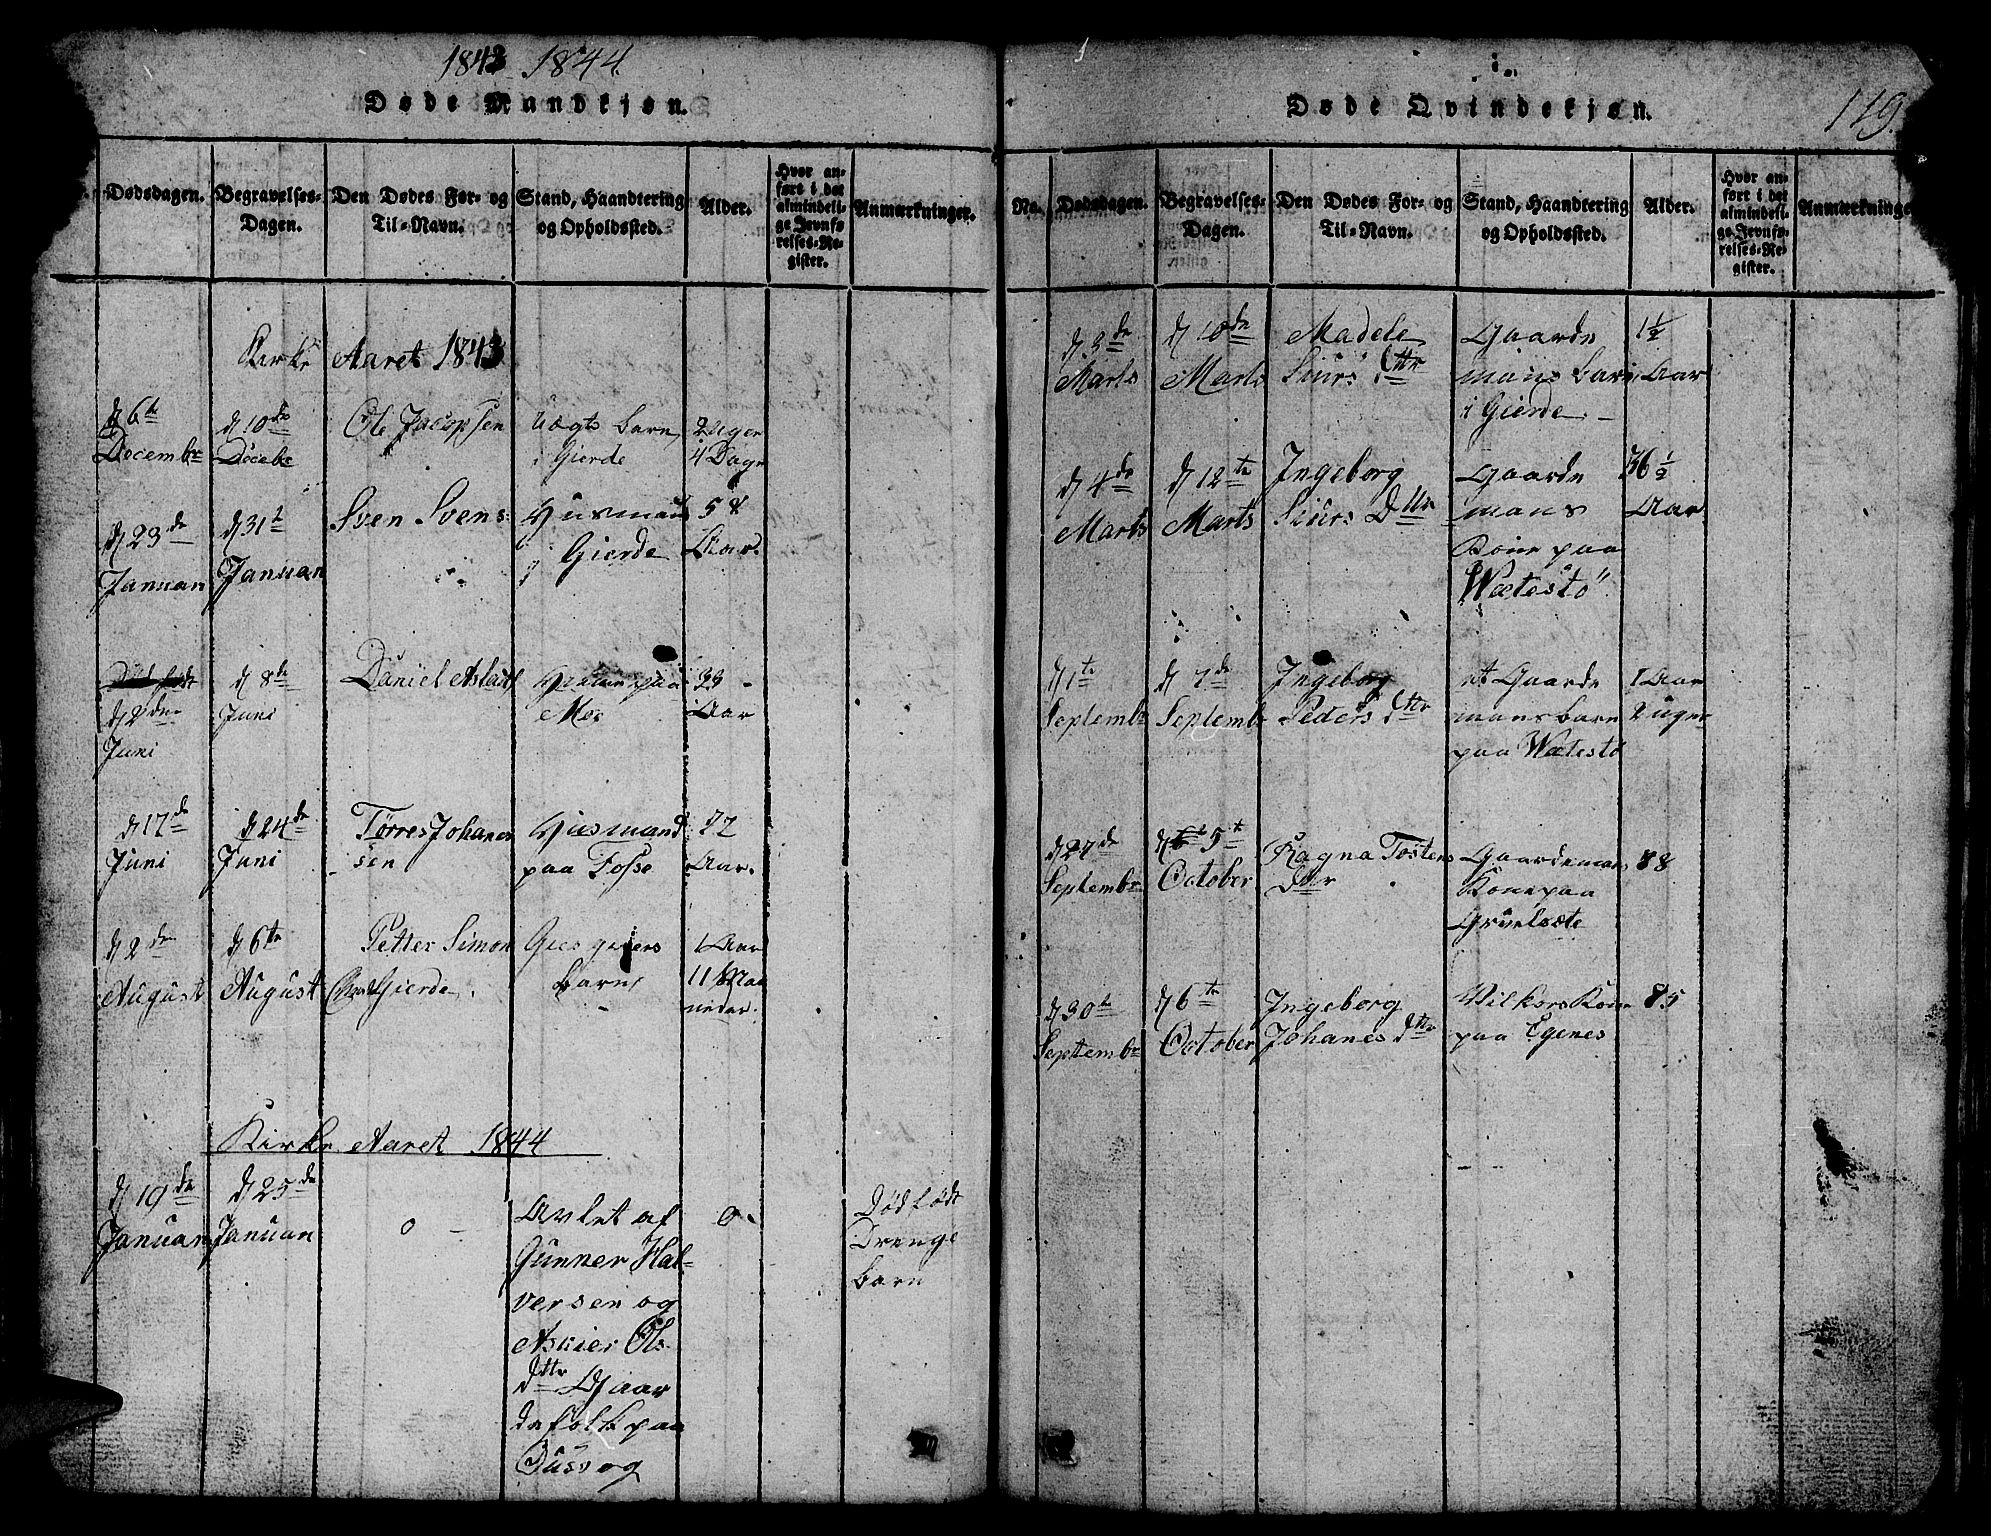 1843 1844.
Døde Mandkjøn.
Dødsdagen.
Begravelses-
Dagen.
Den Dødes For- og
Til-Navn.
Stand, Haandtering
og Opholdssted.
Alder.
Hvor an-
ført i det
almindeli-
ge Jevnfø-
relses-Re-
gister.
Anmærkninger.
Kirke Aaret 1843
d 6te
Decembr
d 10de
Decebr
Ole Jacopsen
barn
i Gierde
2 Uger
4 Dage
d 23de
Januari
d 31te
Januari
Sven Svens:
Husmand
i Gierde
58
Aar.
d 2den
Juni
d 8de
Juni
Daniel
paa
Moe
33
Aar
d 17de
Juni
d 24de
Juni
Tørres Johanes
sen
Husmand
paa Fosse
77
Aar.
d 2den
August
d 6te
August
Petter Simon
Gierde
barn
1 Aar
11 Maa
neder.
Kirke Aaret 1844
d 19de
Januari
d 25de
Januari
0
Avlet af
Gunner Hal-
versen og
Ols
dttr Gaar
defolk paa
0
Dødfødt
Drenge
barn
119.
Døde Qvindekjøn.
No.
Dødsdagen.
Begravelses-
Dagen.
Den Dødes For- og
Til-Navn.
Stand, Haandtering
og Opholdssted.
Alder.
Hvor an-
ført i det
almindeli-
ge Jevnfø-
relses-Re-
gister.
Anmærkninge
d 3de
Marts
d 10de
Marts
Madele
Siurs Dttr
Gaarde
mans barn
i Gierde.
1½
Aar
d 4de
Marts
d 12te
Marts
Ingeborg
Siurs Dttr
Gaarde
mans
Kone paa
Wætestø
36½
Aar
d 1te
Septembr
d 7de
Septembr
Ingeborg
Peders dttr
et Gaarde
mans barn
paa Wætestø
1 Aar
2 uger
d 27de
Septembr
d 5te
October
Ragna Tostens
Dttr
Gaardeman
Kone paa
88
d 30te
Septembr
d 6te
October
Ingeborg
Johanes dttr
Vilkors Kone
paa Egenes
85